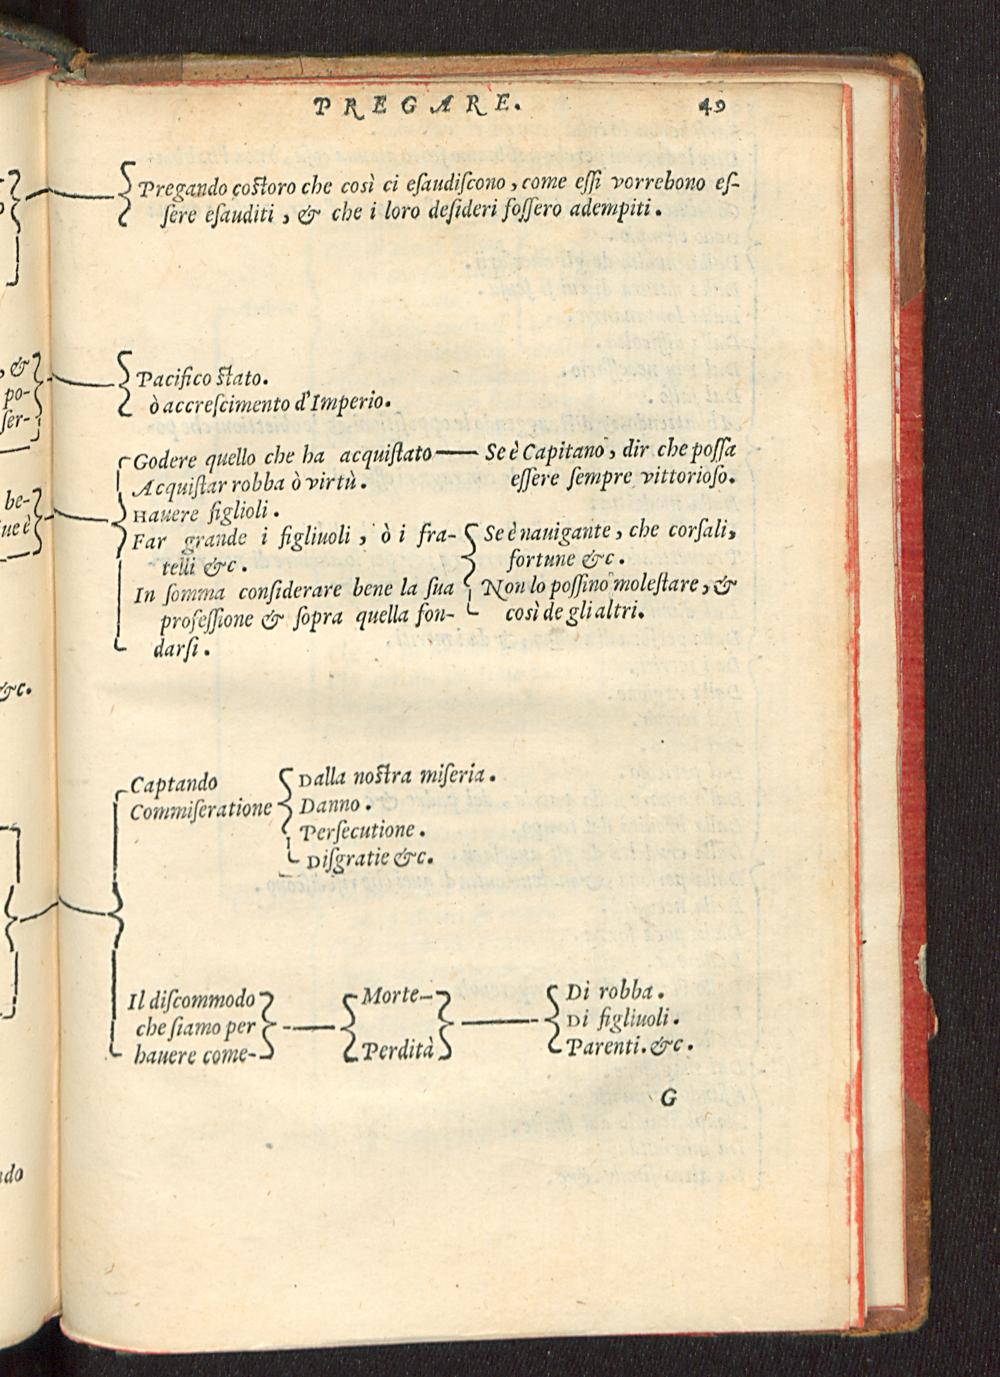 PREGARE. 49
Pregando coſtoro che così ci eſaudiſcono, come eſſi vorrebono eſ-
ſere eſauditi, & che i loro deſideri foſſero adempiti.
, &
po-
ſer-
Pacifico ſtato.
ò accreſcimento d'Imperio.
be-
iue è
Godere quello che ha acquiſtato — Se è Capitano, dir che poſſa
eſſere ſempre vittorioſo.
Acquiſtar robba ò virtù.
Hauere figlioli.
Far grande i figliuoli, ò i fra-
telli &c.
In ſomma conſiderare bene la ſua
profeſſione & ſopra quella fon-
darſi.
Se è nauigante, che corſali,
fortune &c.
Non lo poſſino moleſtare, &
così de gli altri.
&c.
Captando
Commiſeratione
Dalla noſtra miſeria.
Danno.
Perſecutione.
Diſgratie &c.
Il diſcommodo
che ſiamo per
hauere come-
Morte-
Perdità
Di robba.
Di figliuoli.
Parenti. &c.
G
ndo